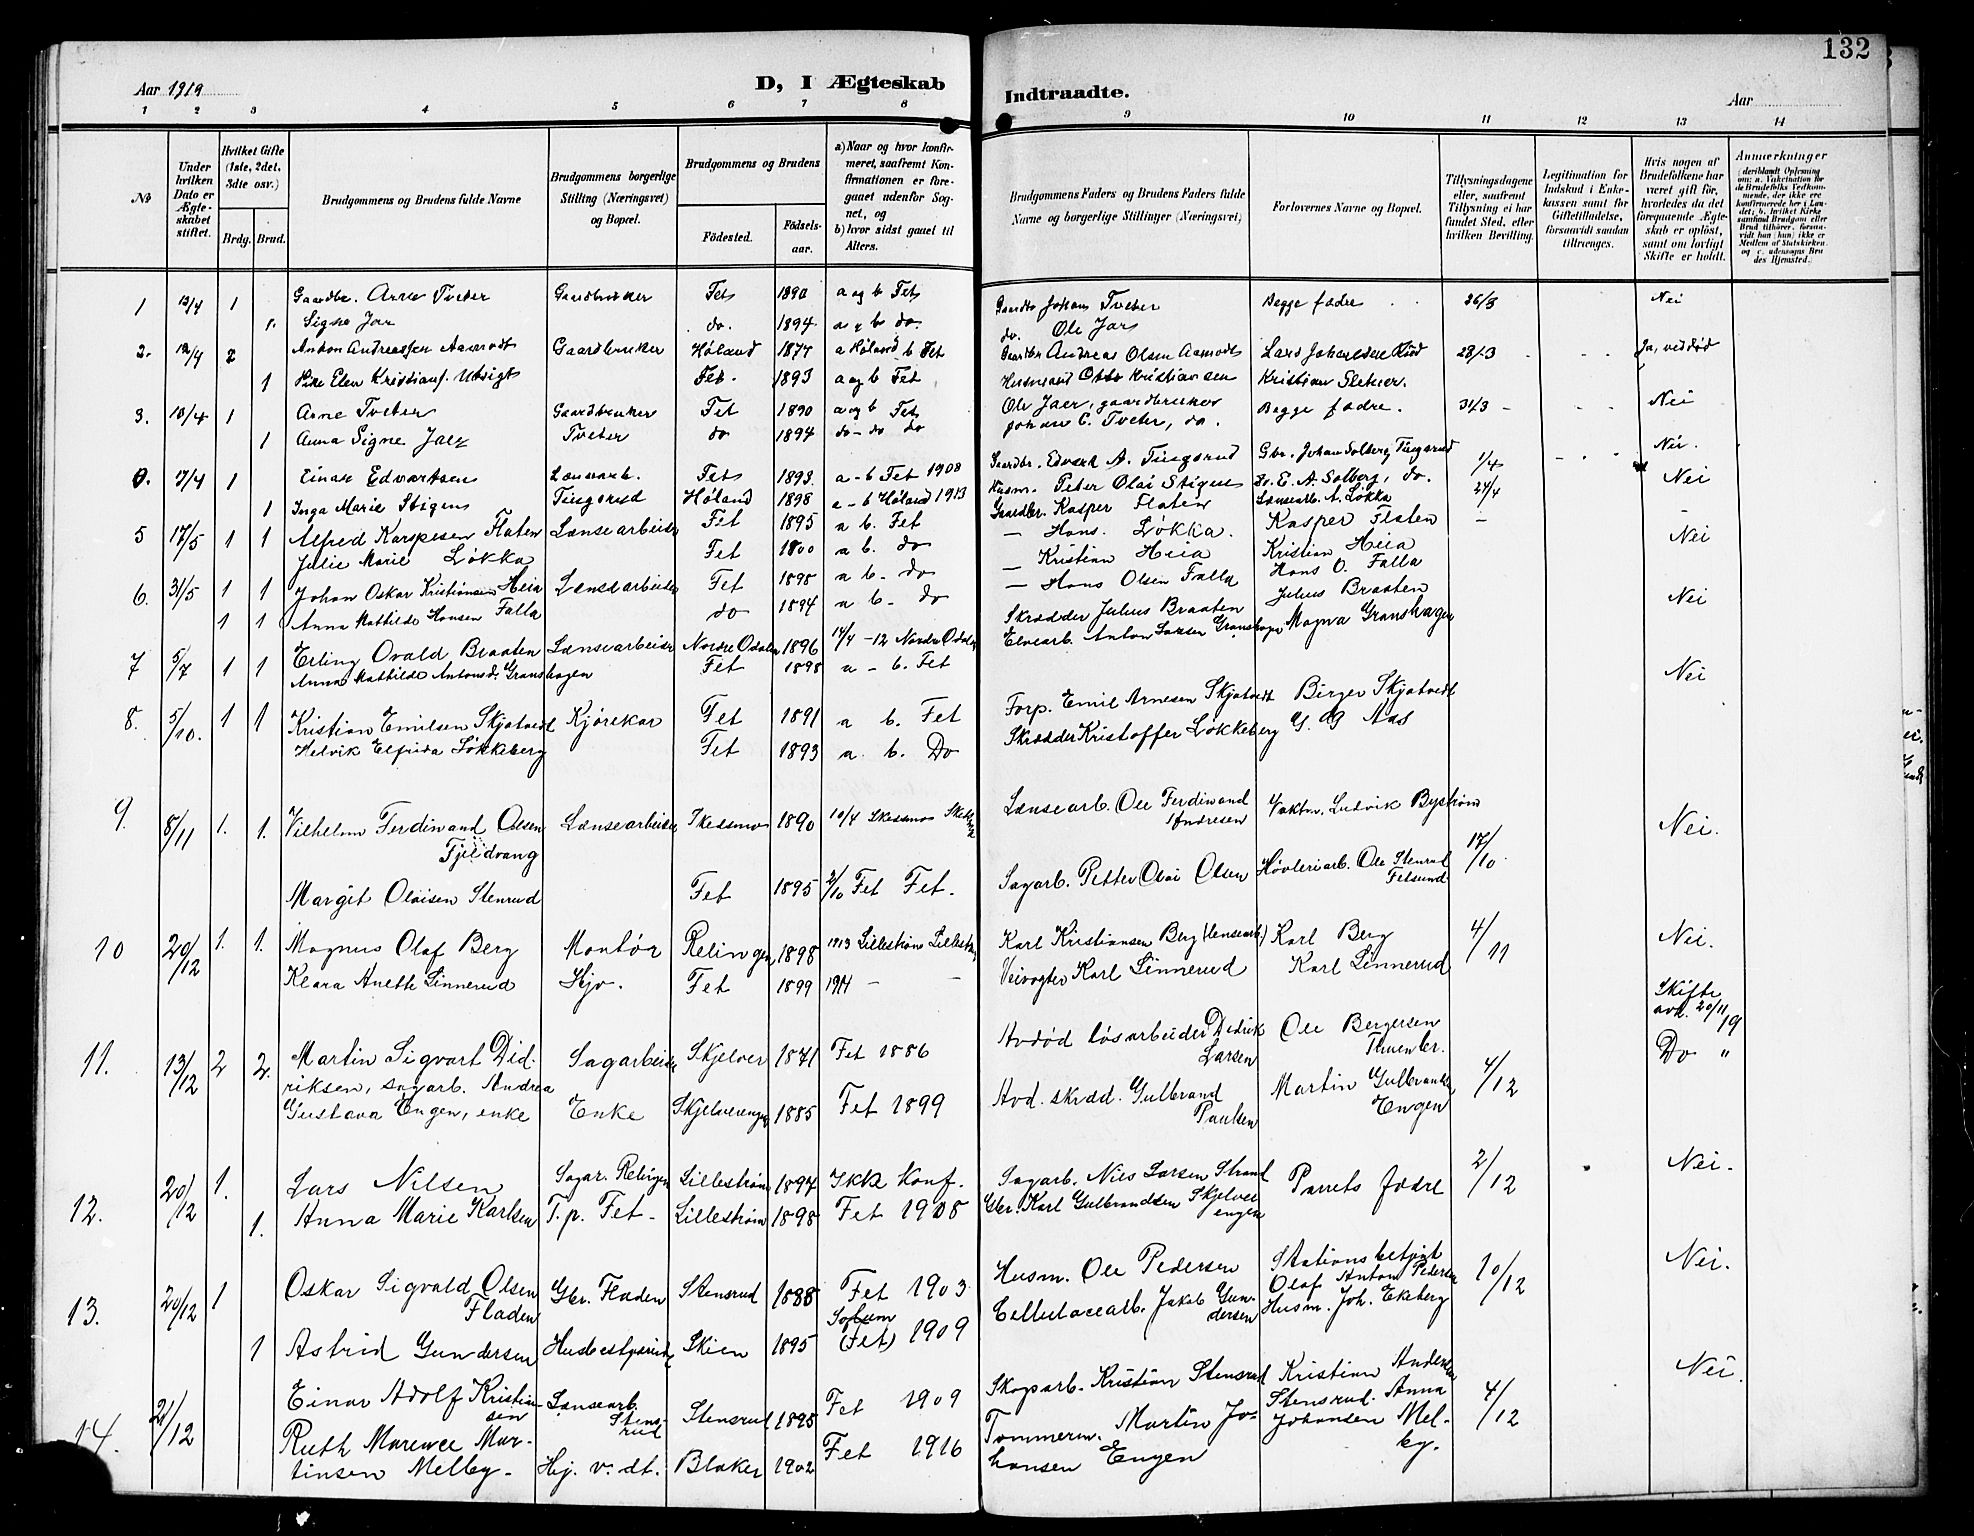 132
Aar 1919
D, I Ægteskab
Indtraadte.
Aar
1 2 3 4 5 6 7 8 9 10 11 12 13 14
No
Under hvilken Dato er Ægteskabet stiftet.
Hvilket Gifte (1ste, 2det, 3die osv.)
Brdg. Brud.
Brudgommens og Brudens fulde Navne
Brudgommens borgerlige Stilling (Næringsvei) og Bopæl.
Brudgommens og Brudens
Fødested. Fødselsaar.
a) Naar og hvor konfirmeret, saafremt Konfirmationen er foregaaet udenfor Sognet, og
b) hvor sidst gaaet til Alters.
Brudgommens Faders og Brudens Faders fulde Navne og borgerlige Stillinger (Næringsvei)
Forlovernes Navne og Bopæl.
Tillysningsdagene eller, saafremt Tillysning ei har fundet Sted, efter hvilken Bevilling.
Legitimation for Indskud i Enkekassen samt for Giftetilladelse, forsaavidt saadan tiltrænges.
Hvis nogen af Brudefolkene har været gift før, hvorledes da det foregaaende Ægteskab er opløst, samt om lovligt Skifte er holdt.
Anmærkninger
1 12/4 1 Gaardbr. Arne Tveter Gaardbruker Fet 1890 a og b Fet Gaardbr Johan Tveter Begge fædre 26/3 Nei
1. Signe Jar do. 1894 a og b do. do. Ole Jar
2. 12/4 2 Anton Andreassen Aamodt Gaardbruker Høland 1874 a Høland b Fet Gaardbr Andreas Olsen Aamodt Lars Johannesen 28/3 Ja, ved død
1 Elen Kristians. Utsigt Fet. 1893 a og b Fet Husmand Otto Kristiansen Kristian Sletner.
3. 13/4 1 Arne Tveter Gaardbruker Fet 1890 a og b Fet Ole Jaer, gaardbruker Begge fædre. 31/3 Nei
1 Anna Signe Jaer Tveter do 1894 do - do do Johan E. Tveter, do.
17/4 1 Einar Edvartsen Lænsearb. Fet 1893 a - b Fet 1908 Gaardbr. Edvard A. Tiegsrud Gbr. Johan Solberg Tiegsrud 1/4 Nei.
1 Inga Marie Stigens Tiegsrud Høland 1898 a - b Høland 1913 Husm. Peter Olai Stigens E. A. Solberg, do. 24/4 Nei
5 17/5 1 1 Alfred Karspesen Flaten Lænsearbeider Fet 1895 a b. Fet Gaardbr. Kasper Flaten Lænsearb. A. Løkka
Julie Marie Løkka Fet 1800 a b. do — Hans. Løkka. Kasper Flaten — Nei
6. 31/5 1 1 Johan Oskar Kristiansen Heia Lænsearbeider Fet 1898 a b. do — Kristian Heia Kristian Heia
1 1 Anna Mathilde Hansen Falla do 1894 a b. do — Hans Olsen Falla Hans O. Falla Nei
7 5/7 1 1 Erling Ovald Braaten Lænsearbeider Nordre Odalen 1896 14/4 - 12 Nordre Odalen Skrædder Julius Braaten Julius Braaten
Anna Mathilde Antonsd. Granshagen Fet 1898 a - b. Fet Elvearb. Anton Larsen Granshagen Magna Granshagen Nei
8. 5/10. 1 1 Kristian Emilsen Skjatvedt Kjørekar Fet 1891 a b. Fet Forp. Emil Arnesen Skjatvedt Birger Skjatvedt
Helvik Elfrida Løkkeberg Fet 1893 a. b. Do Skrædder Kristoffer Løkkeberg G. G Aas
9. 8/11 1. 1. Vilhelm Ferdinand Olsen Lænsearbeider Skedsmo 1890 10/4 Skedsmo Lænsearb. Ole Ferdinand Andresen Vaktm. Ludvik Bystrøm Nei.
Fjeldvang
Margit Olaisen Stenrud Fet 1895 2/10 Fet Fet. Sagarb. Petter Olai Olsen Høvleriarb. Ole Stenrud Fetsund 17/10
10 20/12 1. 1. Magnus Olaf Berg Montør Relingen 1898 1913 Lillestrøm Lillestrøm Karl Kristiansen Berg (lensearb.) Karl Berg 4/11 Nei.
Klara Anette Linnerud Hjv. Fet 1899 1914 — — Veivogter Karl Linnerud Karl Linnerud
11. 13/12 2 2. Martin Sigvart Did- Sagarbeider Skjelver 1871 Fet 1886 Avdød løsarbeider Didrik Larsen Ole Bergersen Skifte avh. 20/11 19
riksen, sagarb. Andrea Do "
Gustava Engen, enke Enke Skjelverengen 1885 Fet 1899 Avd. skræd. Gulbrand Paulsen Martin Gulbrandsen Engen 4/12
12. 20/12 1. Lars Nilsen Sagar. Relingen Lillestrøm 1894 Ikk Konf. Sagarb. Nils Larsen Strand Parrets fædre 2/12 Nei.
1. Anna Marie Karlsen T. p. Fet - Lillestrøm 1898 Fet 1908 Gbr. Karl Gulbrandsen Skjelverengen
13. 20/12 1 Oskar Sigvald Olsen Gbr. Fladen Stensrud 1888 Fet 1903 Husm. Ole Pedersen Stationsbetjent Olaf Anton Pedersen 10/12 Nei.
Fladen
1 Astrid Gundersen Husbestyrerinde Skien 1895 Solum (Fet) 1909 Cellulosearb. Jakob Gundersen Husm. Joh. Ekeberg
14. 21/12 Einar Adolf Kristiansen Lænsearb. Stensrud Stensrud 1895 Fet 1909 Skogsarb. Kristian Stensrud Kristian Andersen Stensrud. Anna 4/12 Nei.
Ruth Marence Mar-
tinsen Melby - Hj. v. dt. Blaker 1902 Fet 1916 Tømmerm. Martin Johansen Engen Johansen Melby.